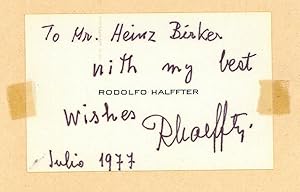 To Mr. Heinz Birker
with my best
RODOLFO HALFFTER
wishes
RHalffter
Julio 1977